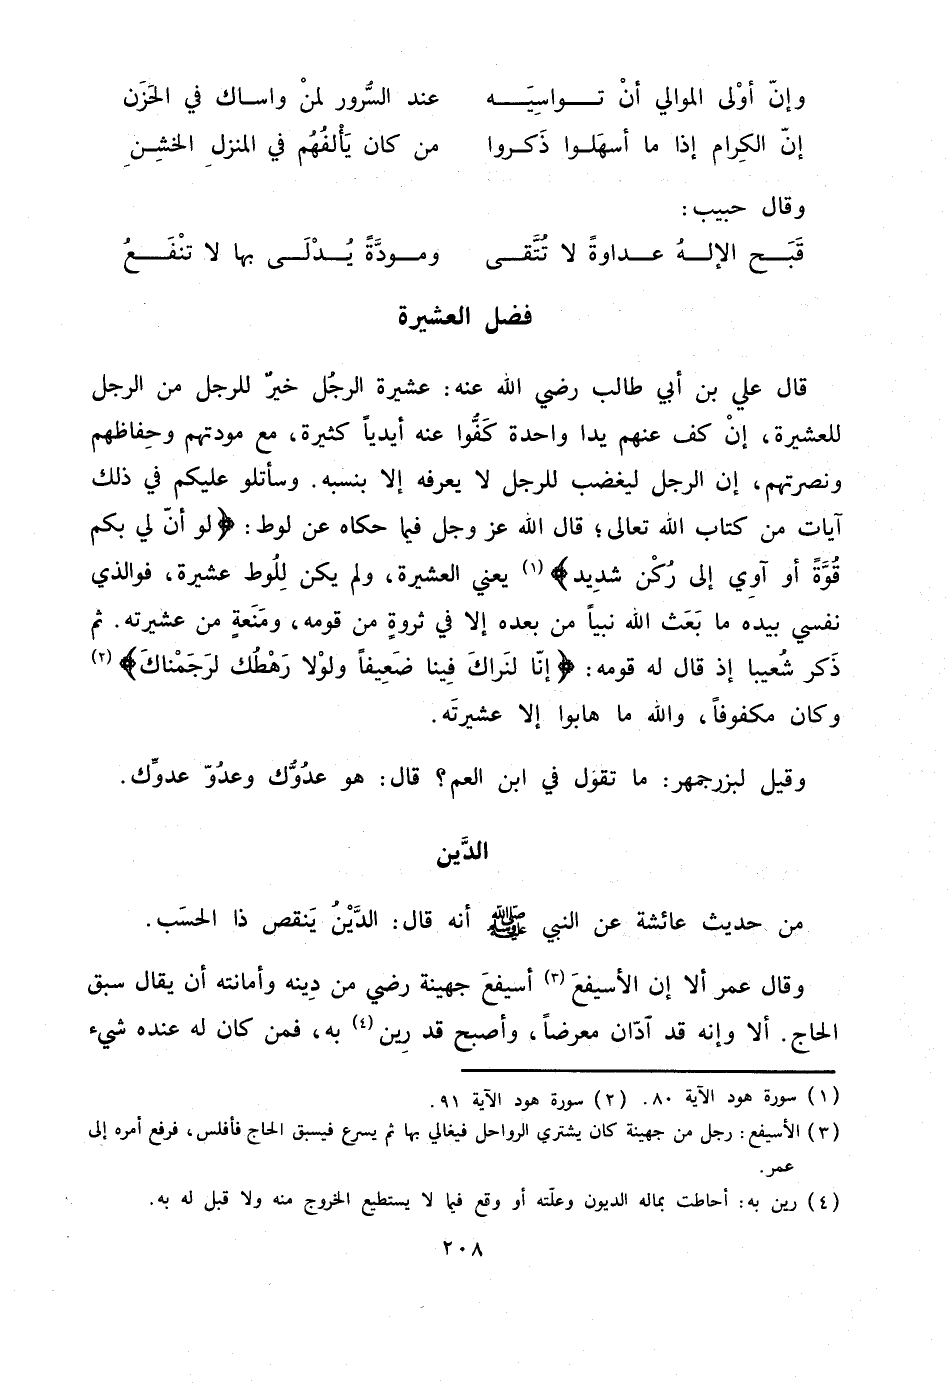 وإنّ أوْلى الموالي أنْ تـــواسِيَـــه عند السُّرور لمنْ واسـاك في الحَزَن
إنّ الكِرام إذا ما أسهَلـوا ذَكـروا من كان يَأْلفُهُم في المنزلِ الخشِـنِ
وقال حبيب:
قَبَـــح الإلـــهُ عـــداوةً لا تُتَّقـــى ومـــودَّةً يُـــدْلَـــى بها لا تنْفَـــعُ
فضل العشيرة
قال علي بن أبي طالب رضي الله عنه: عشيرة الرجُل خيرٌ للرجل من الرجل
للعشيرة، إنْ كف عنهم يدا واحدة كَفُّوا عنه أيدياً كثيرة، مع مودتهم وحِفاظهم
ونصرتهم، إن الرجل ليغضب للرجل لا يعرفه إلا بنسبه. وسأتلو عليكم في ذلك
آيات من كتاب الله تعالى؛ قال الله عز وجل فيما حكاه عن لوط: ﴿لو أنّ لي بكم
قُوَّةً أو آوِي إلى رُكْن شدِيد﴾ (١) يعني العشيرة، ولم يكن لِلُوط عشيرة، فوالذي
نفسي بيده ما بَعَث الله نبياً من بعده إلا في ثروةٍ من قومه، ومَنَعةٍ من عشيرته. ثم
ذَكر شُعيبا إذ قال له قومه: ﴿إنّا لنَراكَ فِينا ضَعِيفاً ولوْلا رَهْطُك لرَجَمْناكَ﴾ (٢)
وكان مكفوفاً، والله ما هابوا إلا عشيرتَه.
وقيل لبزرجمهر: ما تقول في ابن العم؟ قال: هو عدُوُّك وعدُوّ عدوِّك.
الدَّين
من حديث عائشة عن النبي ﷺ أنه قال: الدَّيْنُ يَنقص ذا الحسَب.
وقال عمر ألا إن الأسيفعَ (٣) أسيفعَ جهينة رضي من دِينه وأمانته أن يقال سبق
الحاج. ألا وإنه قد آدّان معرضاً، وأصبح قد رِين (٤) به، فمن كان له عنده شيء
(١) سورة هود الآية ٨٠. (٢) سورة هود الآية ٩١.
(٣) الأسيفع: رجل من جهينة كان يشتري الرواحل فيغالي بها ثم يسرع فيسبق الحاج فأفلس، فرفع أمره إلى
عمر.
(٤) رين به: أحاطت بماله الديون وعلّته أو وقع فيما لا يستطيع الخروج منه ولا قبل له به.
٢٠٨